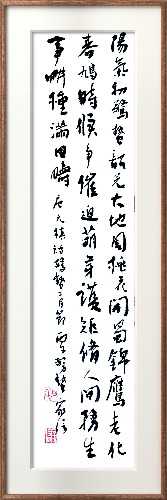 陽氣初驚蟄韶光大地周桃花開蜀錦鷹老化
春鳩時候爭催迫萌芽護矩脩人間務生
事耕種滿田疇 唐元稹詩驚蟄二月節